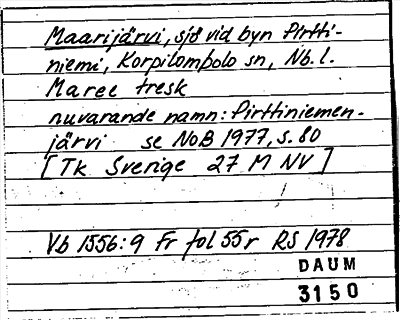 Maarijärvi, sjö vid byn Pirtti-
niemi, Korpilombolo sn, Nb. l.
Maree tresk
nuvarande namn: Pirttiniemen-
järvi se NoB 1977, s. 80
[Tk Sverige 27 M NV]
Vb 1556:9 Fr fol 55r RS 1978
DAUM
3150